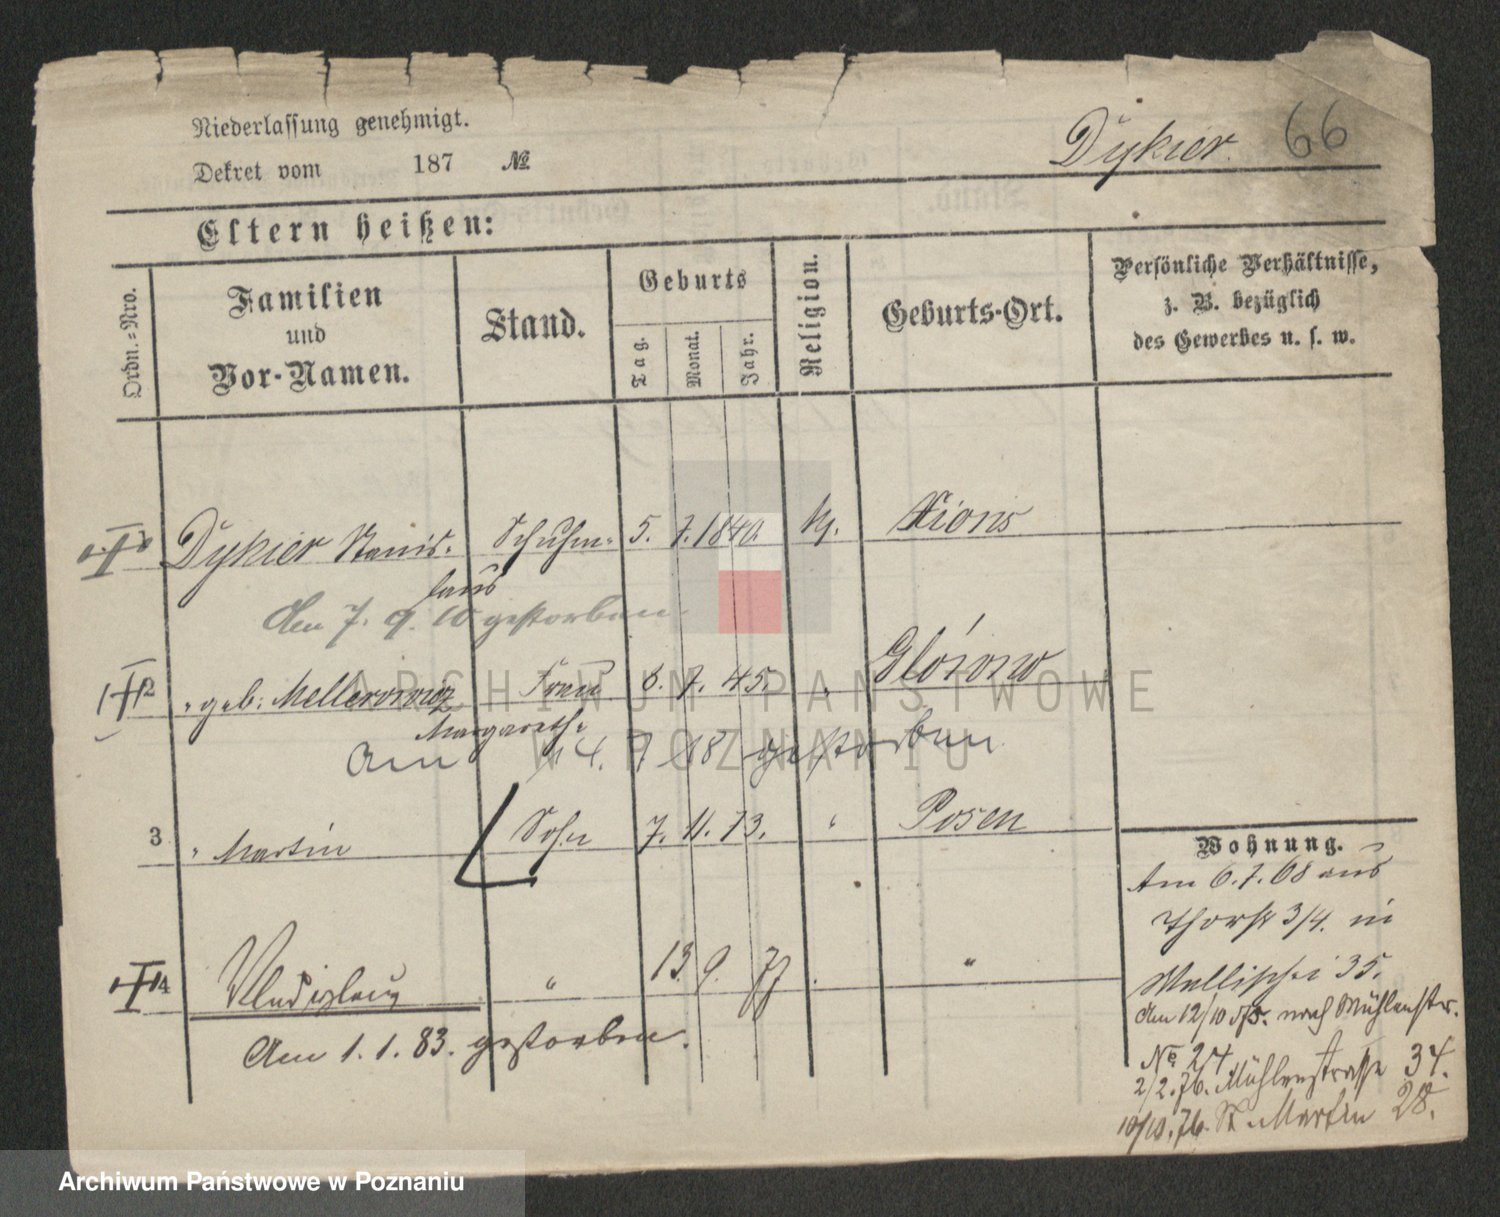 Niederlassung genehmigt.
Dykier. 66
Dekret vom 187 №
Eltern heißen:
Ordn.-Nro.
Familien
und
Vor-Namen.
Stand.
Geburts
Tag.
Monat.
Jahr.
Religion.
Geburts-Ort.
Persönliche Verhältnisse,
z. B. bezüglich
des Gewerbes u. s. w.
Dykier Stanis- Schuhm. 5. 7. 1840. kj. Xions
laus
Am 7. 9. 10 gestorben.
2 " geb: Mellerowicz Frau 6. 7. 45. "
Margareth.
Am 14. 9 18 gestorben.
3 " Martin Sohn 7. 11. 73. " Posen
4 Wladizlaus " 13. 9. 77 . "
Am 1. 1. 83. gestorben.
Wohnung.
Am 6.7.68 aus
3/4. in
Wallischei 35.
Am 12/10 75. nach Mühlenstr.
№ 24
2/2.76. Mühlenstrasse 34.
10/10.76. St. Martin 28.
ARCHIWUM PAŃSTWOWE
W POZNANIU
Archiwum Państwowe w Poznaniu